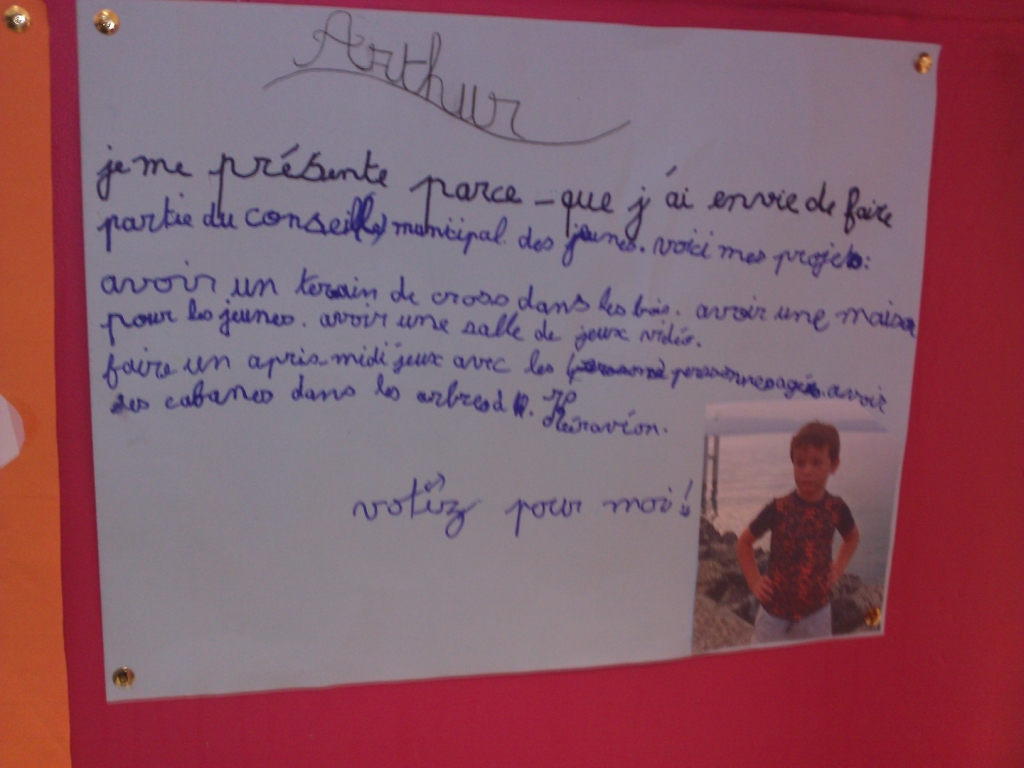 Arthur
je me présente parce-que j'ai envie de faire
partie du conseil municipal des jeunes. voici mes projets:
avoir un terrain de cross dans les bois. avoir une maison
pour les jeunes. avoir une salle de jeux vidéo.
faire un après midi jeux avec les personnes agés. avoir
des cabanes dans les arbres
votez pour moi!